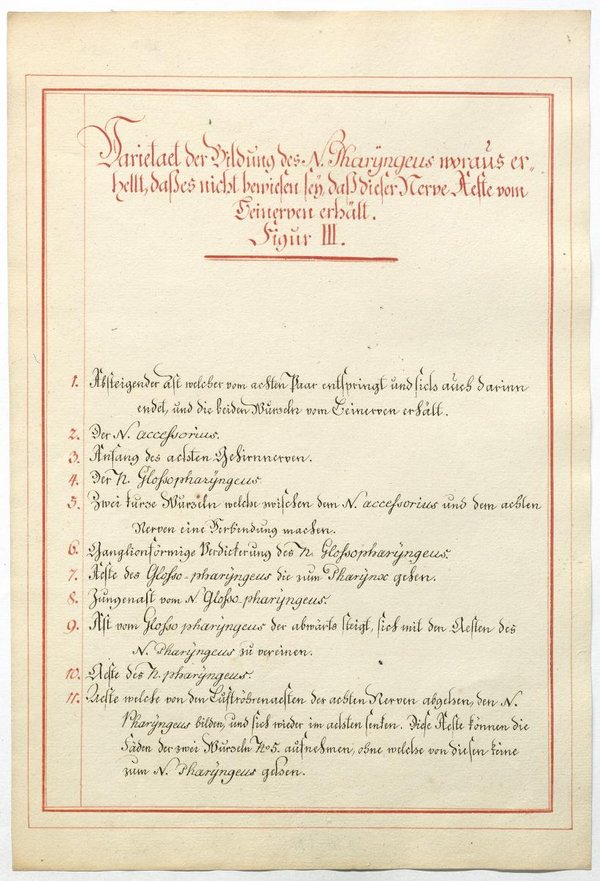 Varietaet der Bildung des N. Pharÿngeus woraus er-
hellt, daß es nicht bewiesen seÿ, daß dieser Nerve Aeste vom
Beinerven erhält.
Figur III.
1. Absteigender Ast welcher vom achten Paar entspringt und sich auch darinn
endet, und die beiden Wurzeln vom Beinerven erhält.
2. Der N. accessorius.
3. Anfang des achten Gehirnnerven.
4. Der N. Glossopharÿngeus
5. Zwei kurze Wurzeln welche zwischen dem N. accessorius und dem achten
Nerven eine Verbindung machen.
6. Ganglionförmige Verdickerung des N. Glossopharÿngeus.
7. Aeste des Glosso-pharÿngeus die zum Pharÿnx gehen.
8. Zungenast vom N. Glosso-pharÿngeus.
9. Ast vom Glosso pharÿngeus der abwärts steigt, sich mit den Aesten des
N. Pharÿngeus zu vereinen.
10. Aeste des N. pharÿngeus.
11. Aeste welche von den Luftröhrenaesten der achten Nerven abgehen, den N.
Pharÿngeus bilden, und sich wieder im achten senken. Diese Aeste können die
Fäden der zwei Wurzeln No 5. aufnehmen, ohne welche von diesen keine
zum N. Pharÿngeus gehen.